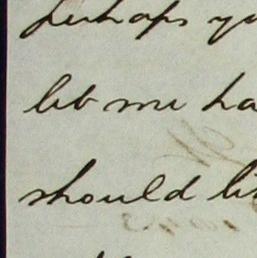 perhaps yo
let me ha
should li